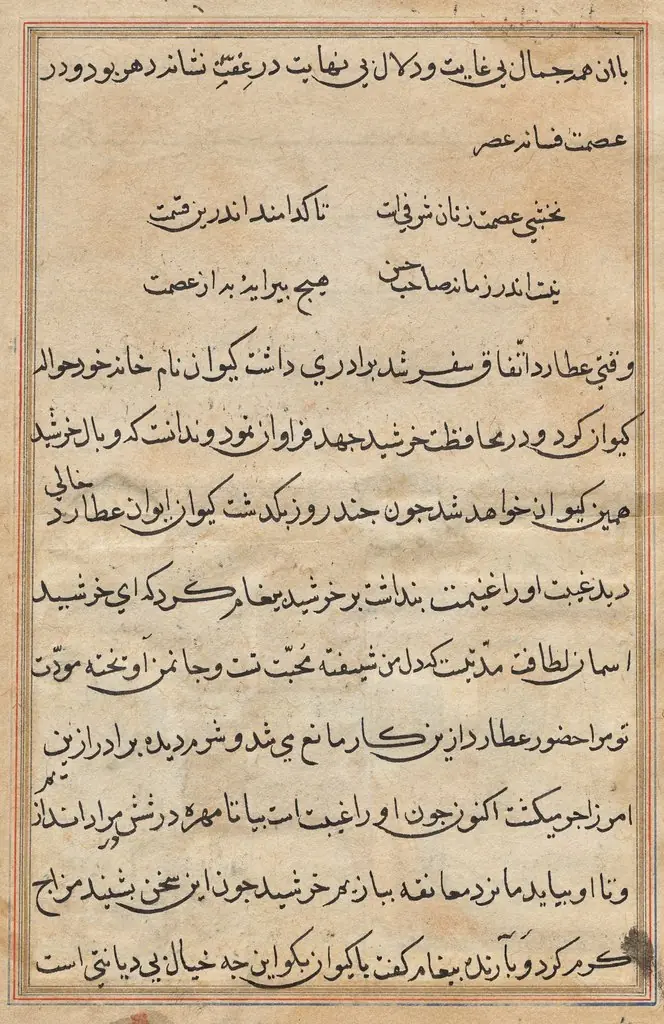 باان همه جمال بی غایت و دلال بی نهایت در عفّت نشانه دهر بود و در
عصمت فسانه عصر
نخشبی عصمت زنان شرفی است تا کدامند اندرین قسمت
نیست اندر زمانه صاحب حسن هیچ پیرایهٔ به از عصمت
وقتی عطارد را اتّفاق سفر شد برادری داشت کیوان نام خانه خود حواله
کیوان کرد و در محافظت خرشید جهد فراوان نمود و ندانست که وبال خرشید
همین کیوان خواهد شد جون جند روز بکدشت کیوان ایوان عطارد خالی
دید غیبت او را غنیمت بنداشت بر خرشید بیغام کرد که ای خرشید
اسمان لطافت مدّتیست که دل من شیفته محبّت تست و جان من آوتخته مودّت
تو مرا حضور عطارد ازین کار مانع می شد و شرم دیده برادر ازین
امر زاجر میکشت اکنون جون او را غیبت است بیا تا مهره در شش در مراد اندازیم
و تا او بیاید ما نرد معانقه ببازیم خرشید جون این سخن بشنید مزاج
کرم کرد و بآرنده بیغام کفت با کیوان بکو این جه خیال بی دیانتی است